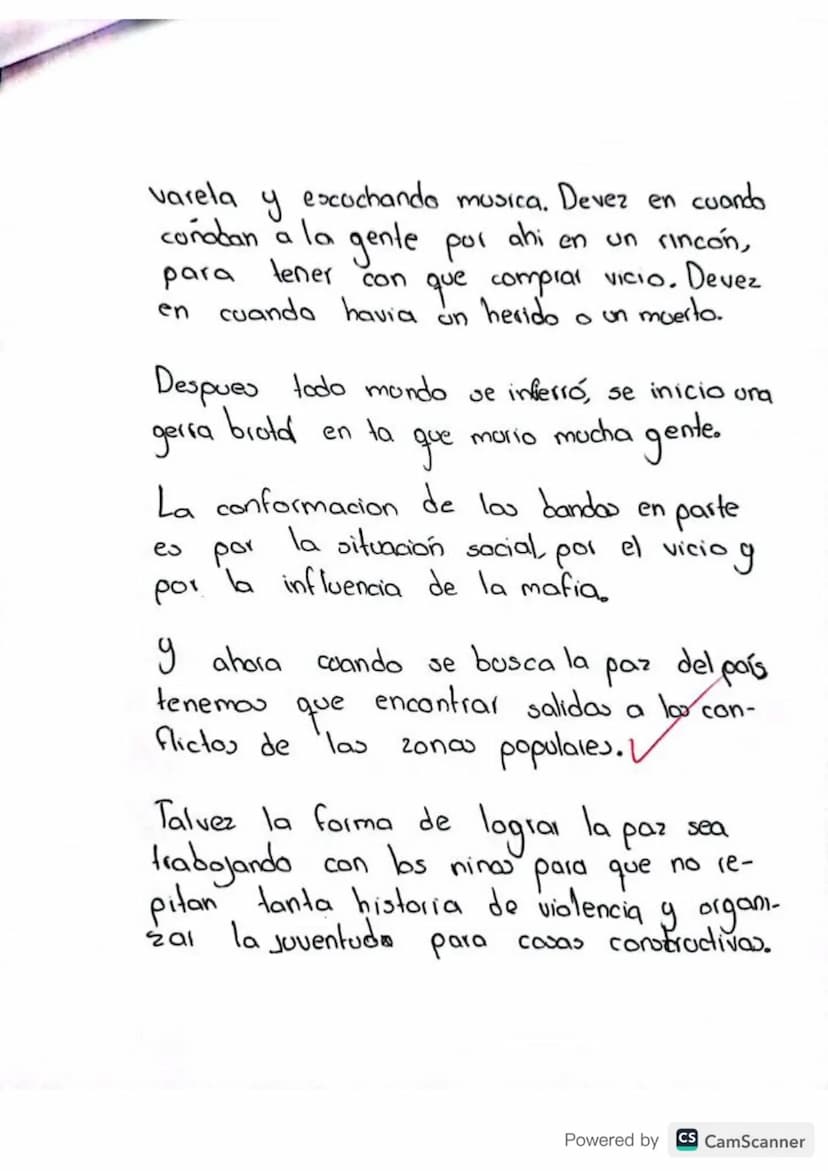 varela y escuchando musica. Devez en cuando
coñoban a la gente por ahi en un rincón,
para tener con que comprar vicio. Devez
en cuando havia un herido o un muerto.
Despues todo mundo se inferró, se inicio una
gerra brotd en la que murio mucha gente.
La conformacion de las bandas en parte
es por la situación social, por el vicio y
por la influencia de la mafia.
y ahora cuando se busca la paz del país
tenemos que encontrar salidas a los con-
flictos de las zonas populares.
Talvez la forma de lograr la paz sea
trabajando con los ninos para que no re-
pitan tanta historia de violencia y organi-
zar la juventuda para cosas constructivas.
Powered by CS CamScanner